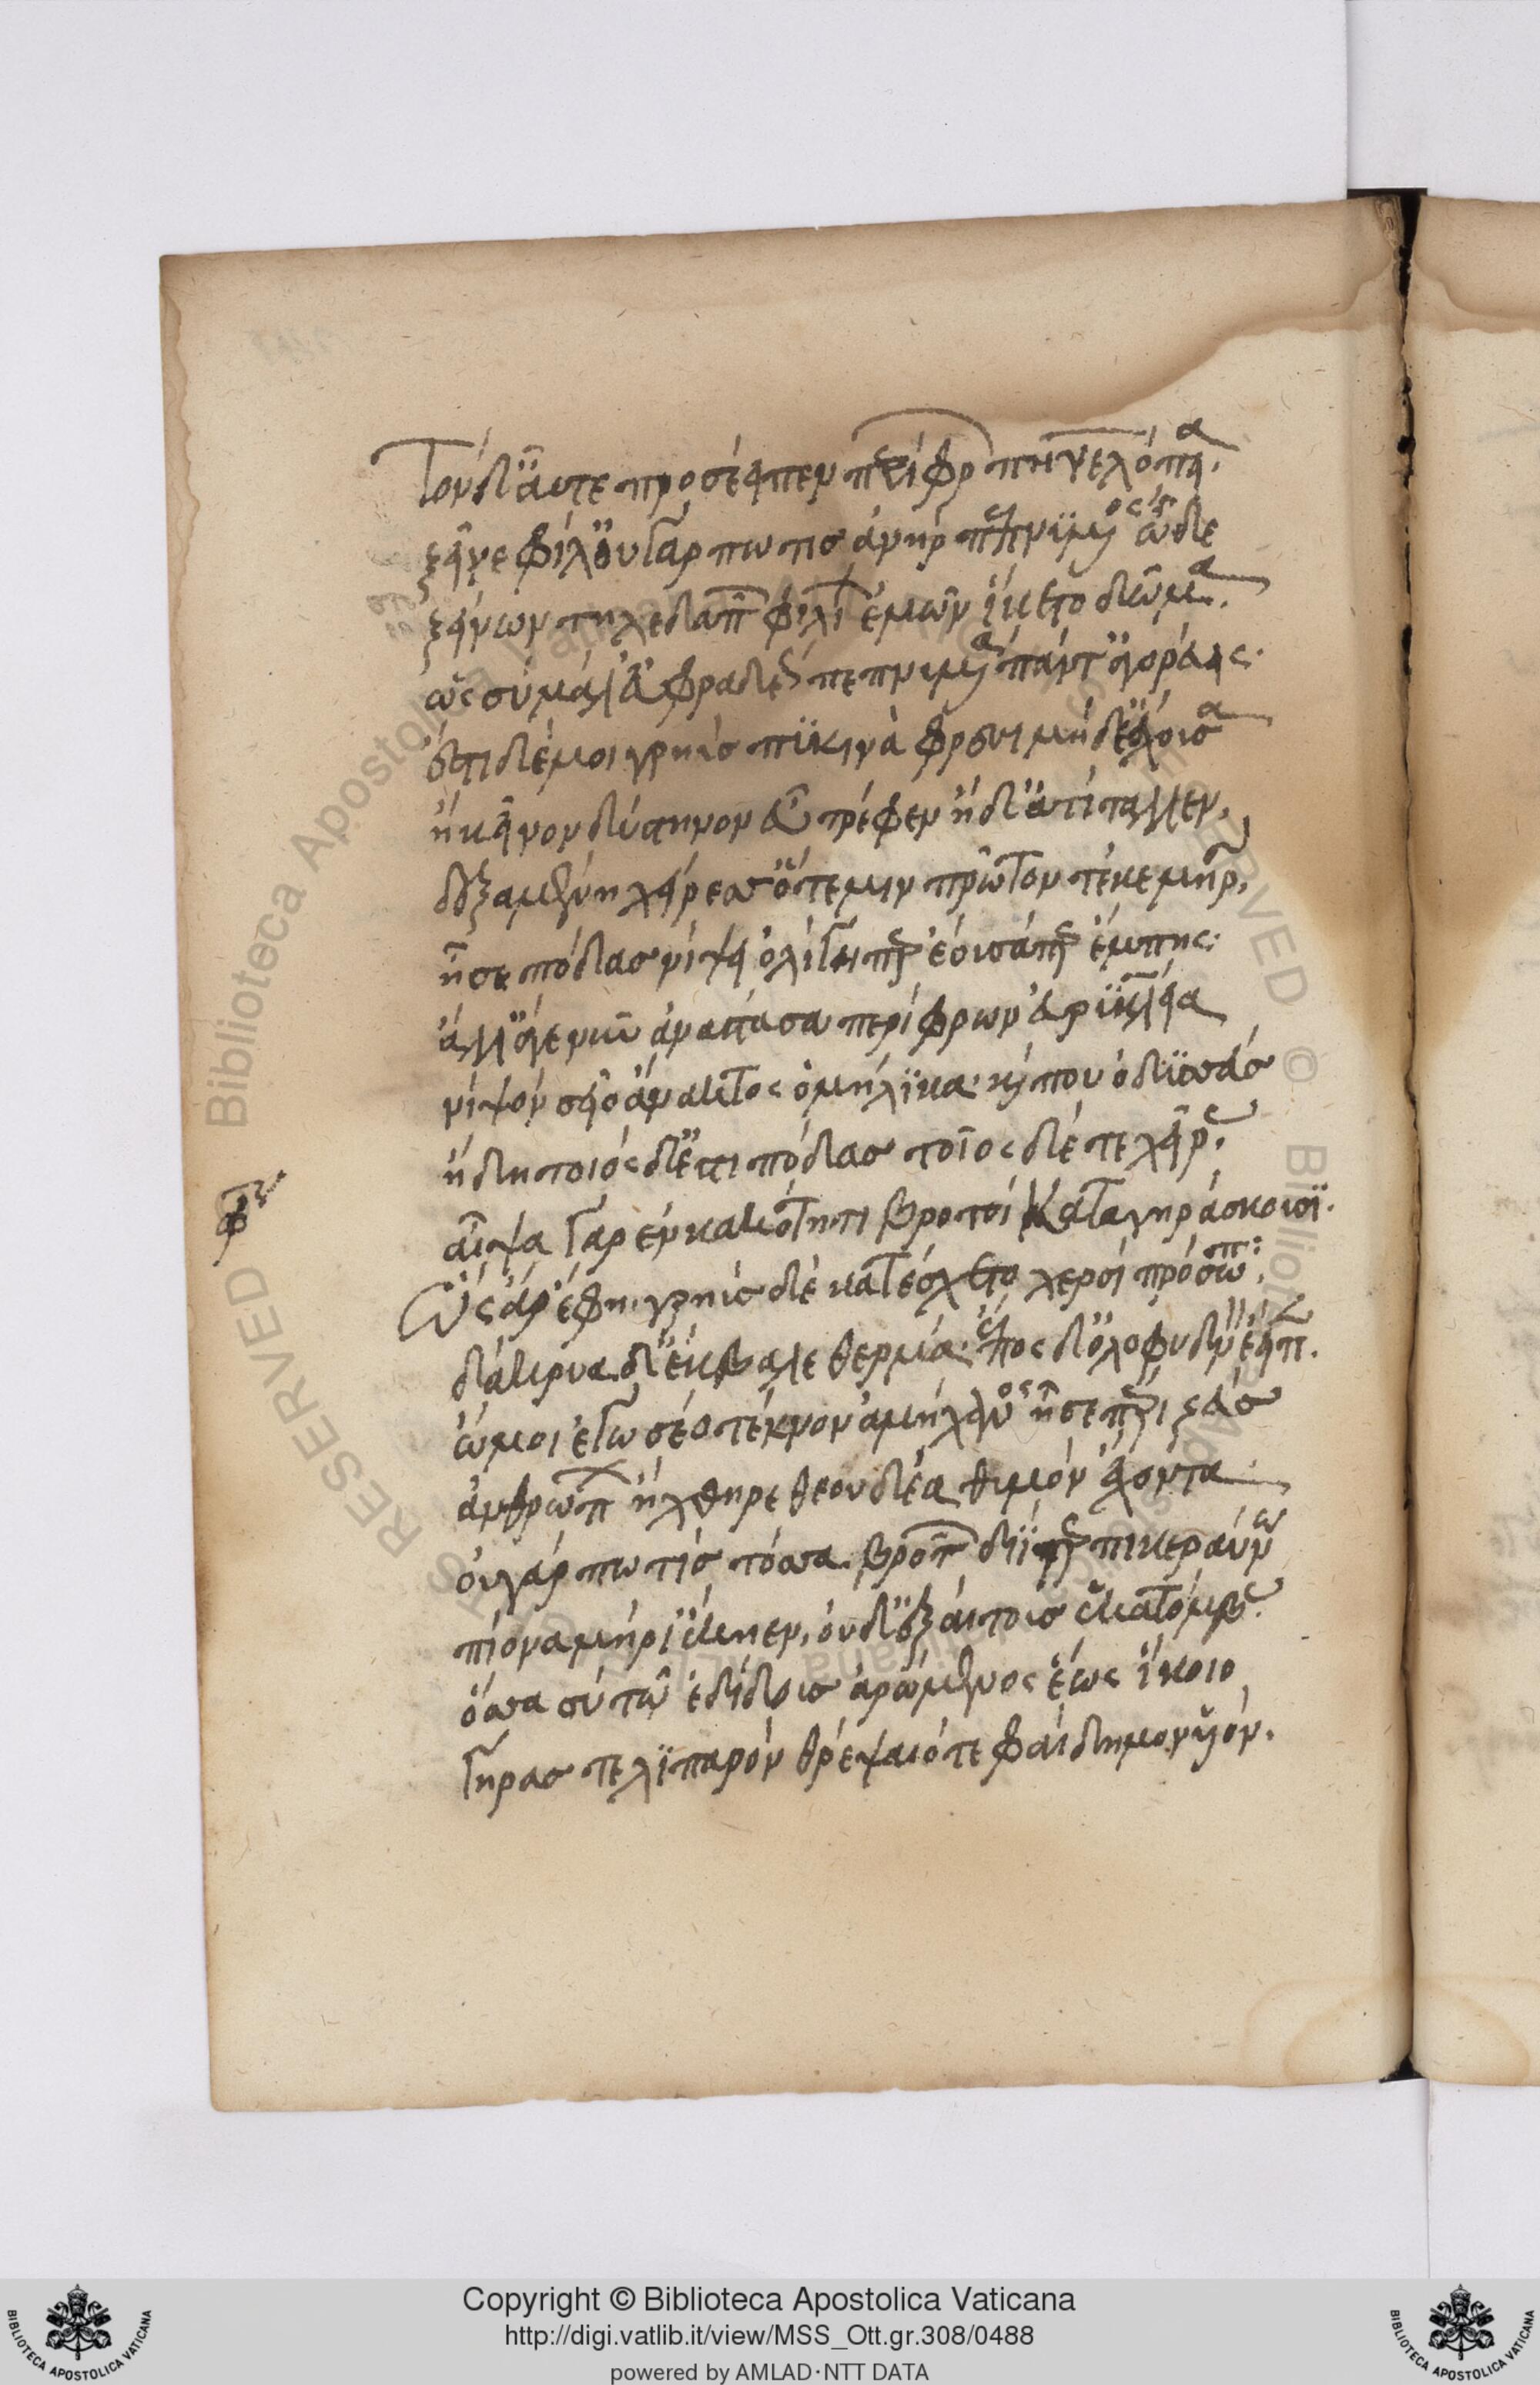 Τὸν δ' αὖτε προσέειπεν περίφρ πηνελόπεια.
ξεῖνε φίλ' οὐ γάρ πώ τις ἀνὴρ πεπνυμένος ὧδε
ξείνων τηλεδαπ φιλί ἐμὸν ἵκετο δῶμα.
ὡς σὺ μάλ' εὐφραδέ πεπνυμένα πάντ' ἀγορεύεις.
ἔστι δέ μοι γρηῢς πυκινὰ φρεσὶ μήδε' ἔχουσα
ἣ κεῖνον δύστηνον εὖ τρέφεν ἠδ' ἀτίταλλεν,
δεξαμένη χείρεσσ' ὅτε μιν πρῶτον τέκε μήτηρ,
ἥ σε πόδας νίψει ὀλιγηπ περ ἔμπης.
ἀλλ' ἄγε νῦν ἀνστᾶσα περίφρων εὐρύκλεια
νίψον σοῖο ἄνακτος ὁμήλικα· καί που ὀδυσσεὺς
ἤδη τοιός δ' ἐστὶ πόδας τοῖος δέ τε χεῖρας.
αἶψα γὰρ ἐν κακότητι βροτοὶ καταγηράσκουσι.
Ὣς ἄρ' ἔφη· γρηῢς δὲ κατέσχετο χερσὶ πρόσωπ:
δάκρυα δ' ἔκβαλε θερμά· ἔπος δ' ὀλοφυδνὸν ἔειπ.
ὤμοι ἐγὼ σέο τέκνον ἀμήχανος ἦ σε περι ζεὺς
ἀνθρώπ ἤχθηρε θεουδέα θυμὸν ἔχοντα
οὐ γάρ πώ τις τόσσα βροτῶν διῒ τερπικεραύνω
πίονα μηρί' ἔκηεν, οὐδ' ἐξαίτους ἑκατόμβας.
ὅσσα σὺ τῶ ἐδίδους ἀρώμενος ἕως ἵκοιο
γῆρας τε λιπαρὸν θρέψαιό τε φαίδιμον υἱόν.
Copyright © Biblioteca Apostolica Vaticana
http://digi.vatlib.it/view/MSS_Ott.gr.308/0488
powered by AMLAD·NTT DATA